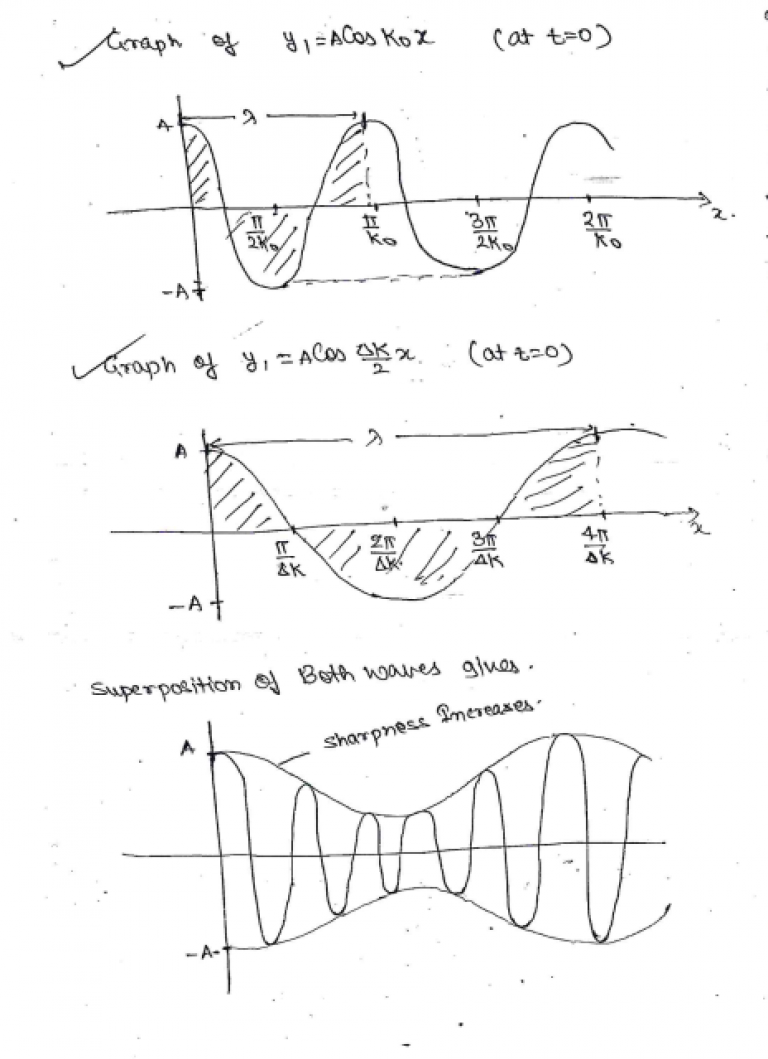 Graph of y₁=ACos K₀x (at t=0)
A
λ
π/2K₀ π/K₀ 3π/2K₀ 2π/K₀ x.
-A
Graph of y₁=ACos ΔK/2 x. (at t=0)
A
λ
π/ΔK 2π/ΔK 3π/ΔK 4π/ΔK x
-A
Superposition of Both waves gives.
Sharpness Increases.
A
-A